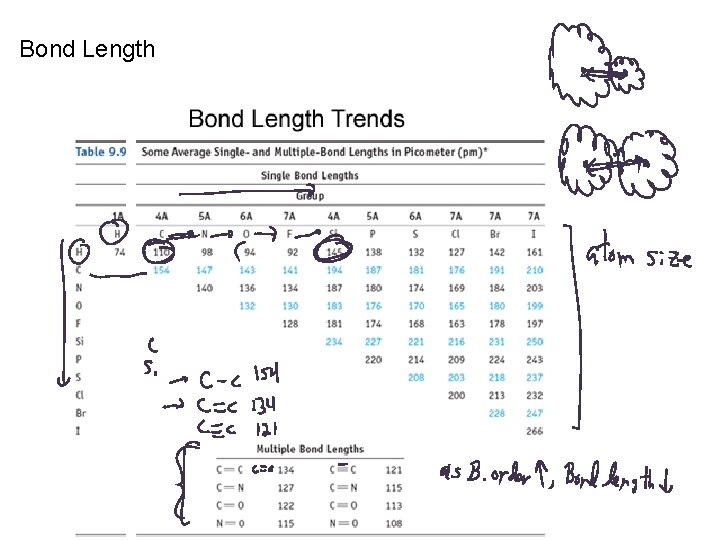 Bond Length
Bond Length Trends
Table 9.9 Some Average Single- and Multiple-Bond Lengths in Picometer (pm)*
Single Bond Lengths
Group
1A 4A 5A 6A 7A 4A 5A 6A 7A 7A 7A
H C N O F Si P S Cl Br I
H 74 110 98 94 92 145 138 132 127 142 161
C 154 147 143 141 194 187 181 176 191 210
N 140 136 134 187 180 174 169 184 203
O 132 130 183 176 170 165 180 199
F 128 181 174 168 163 178 197
Si 234 227 221 216 231 250
P 220 214 209 224 243
S 208 203 218 237
Cl 200 213 232
Br 228 247
I 266
atom size
C
Si
C-C 154
C=C 134
C≡C 121
Multiple Bond Lengths
C=C C=C 134 C≡C 121
C=N 127 C≡N 115
C=O 122 C≡O 113
N=O 115 N≡O 108
as B. order ↑, Bond length ↓